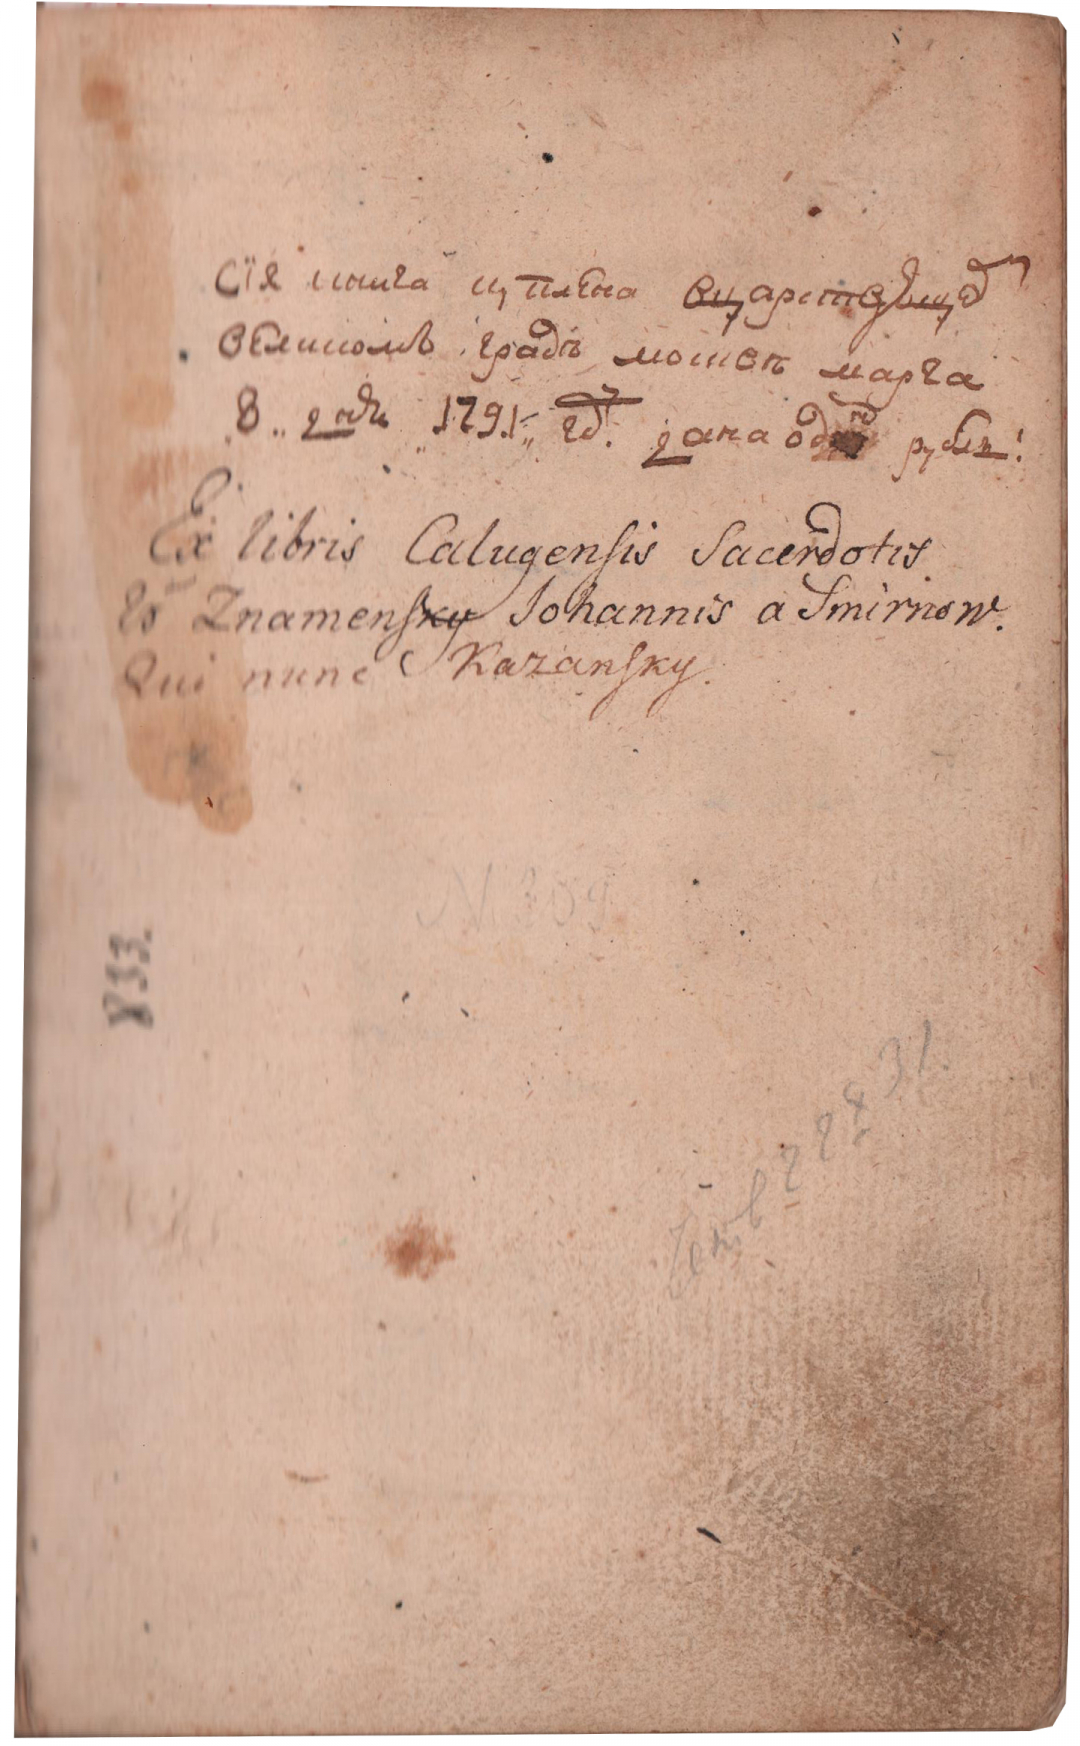 Сія книга куплена вцарствующ
великомъ градѣ москвѣ марта
8 дня 1791 гд. дана один рубль!
Ex libris Calugensis Sacerdotis
Znamensky Johannis a Smirnow.
Qui nunc Kazansky.
N 309
833.